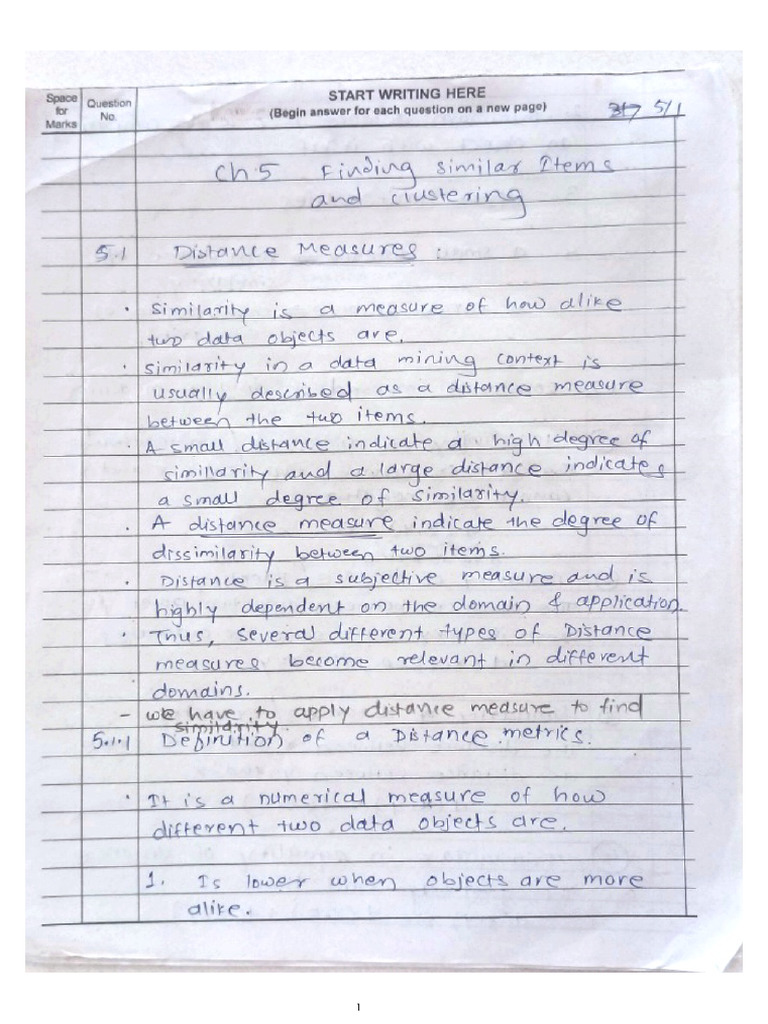 Space for Marks
Question No.
START WRITING HERE
(Begin answer for each question on a new page)
5/1
Ch 5 Finding Similar Items
and clustering
5.1 Distance Measures :
· Similarity is a measure of how alike
two data objects are.
· Similarity in a data mining context is
usually described as a distance measure
between the two items.
· A small distance indicate a high degree of
simillarity and a large distance indicates
a small degree of similarity.
· A distance measure indicate the degree of
dissimilarity between two items.
· Distance is a subjective measure and is
highly dependent on the domain & application.
· Thus, several different types of Distance
measures become relevant in different
domains.
- we have to apply distance measure to find
similarity.
5.1.1 Definition of a Distance metrics.
· It is a numerical measure of how
different two data objects are.
1. Is lower when objects are more
alike.
1